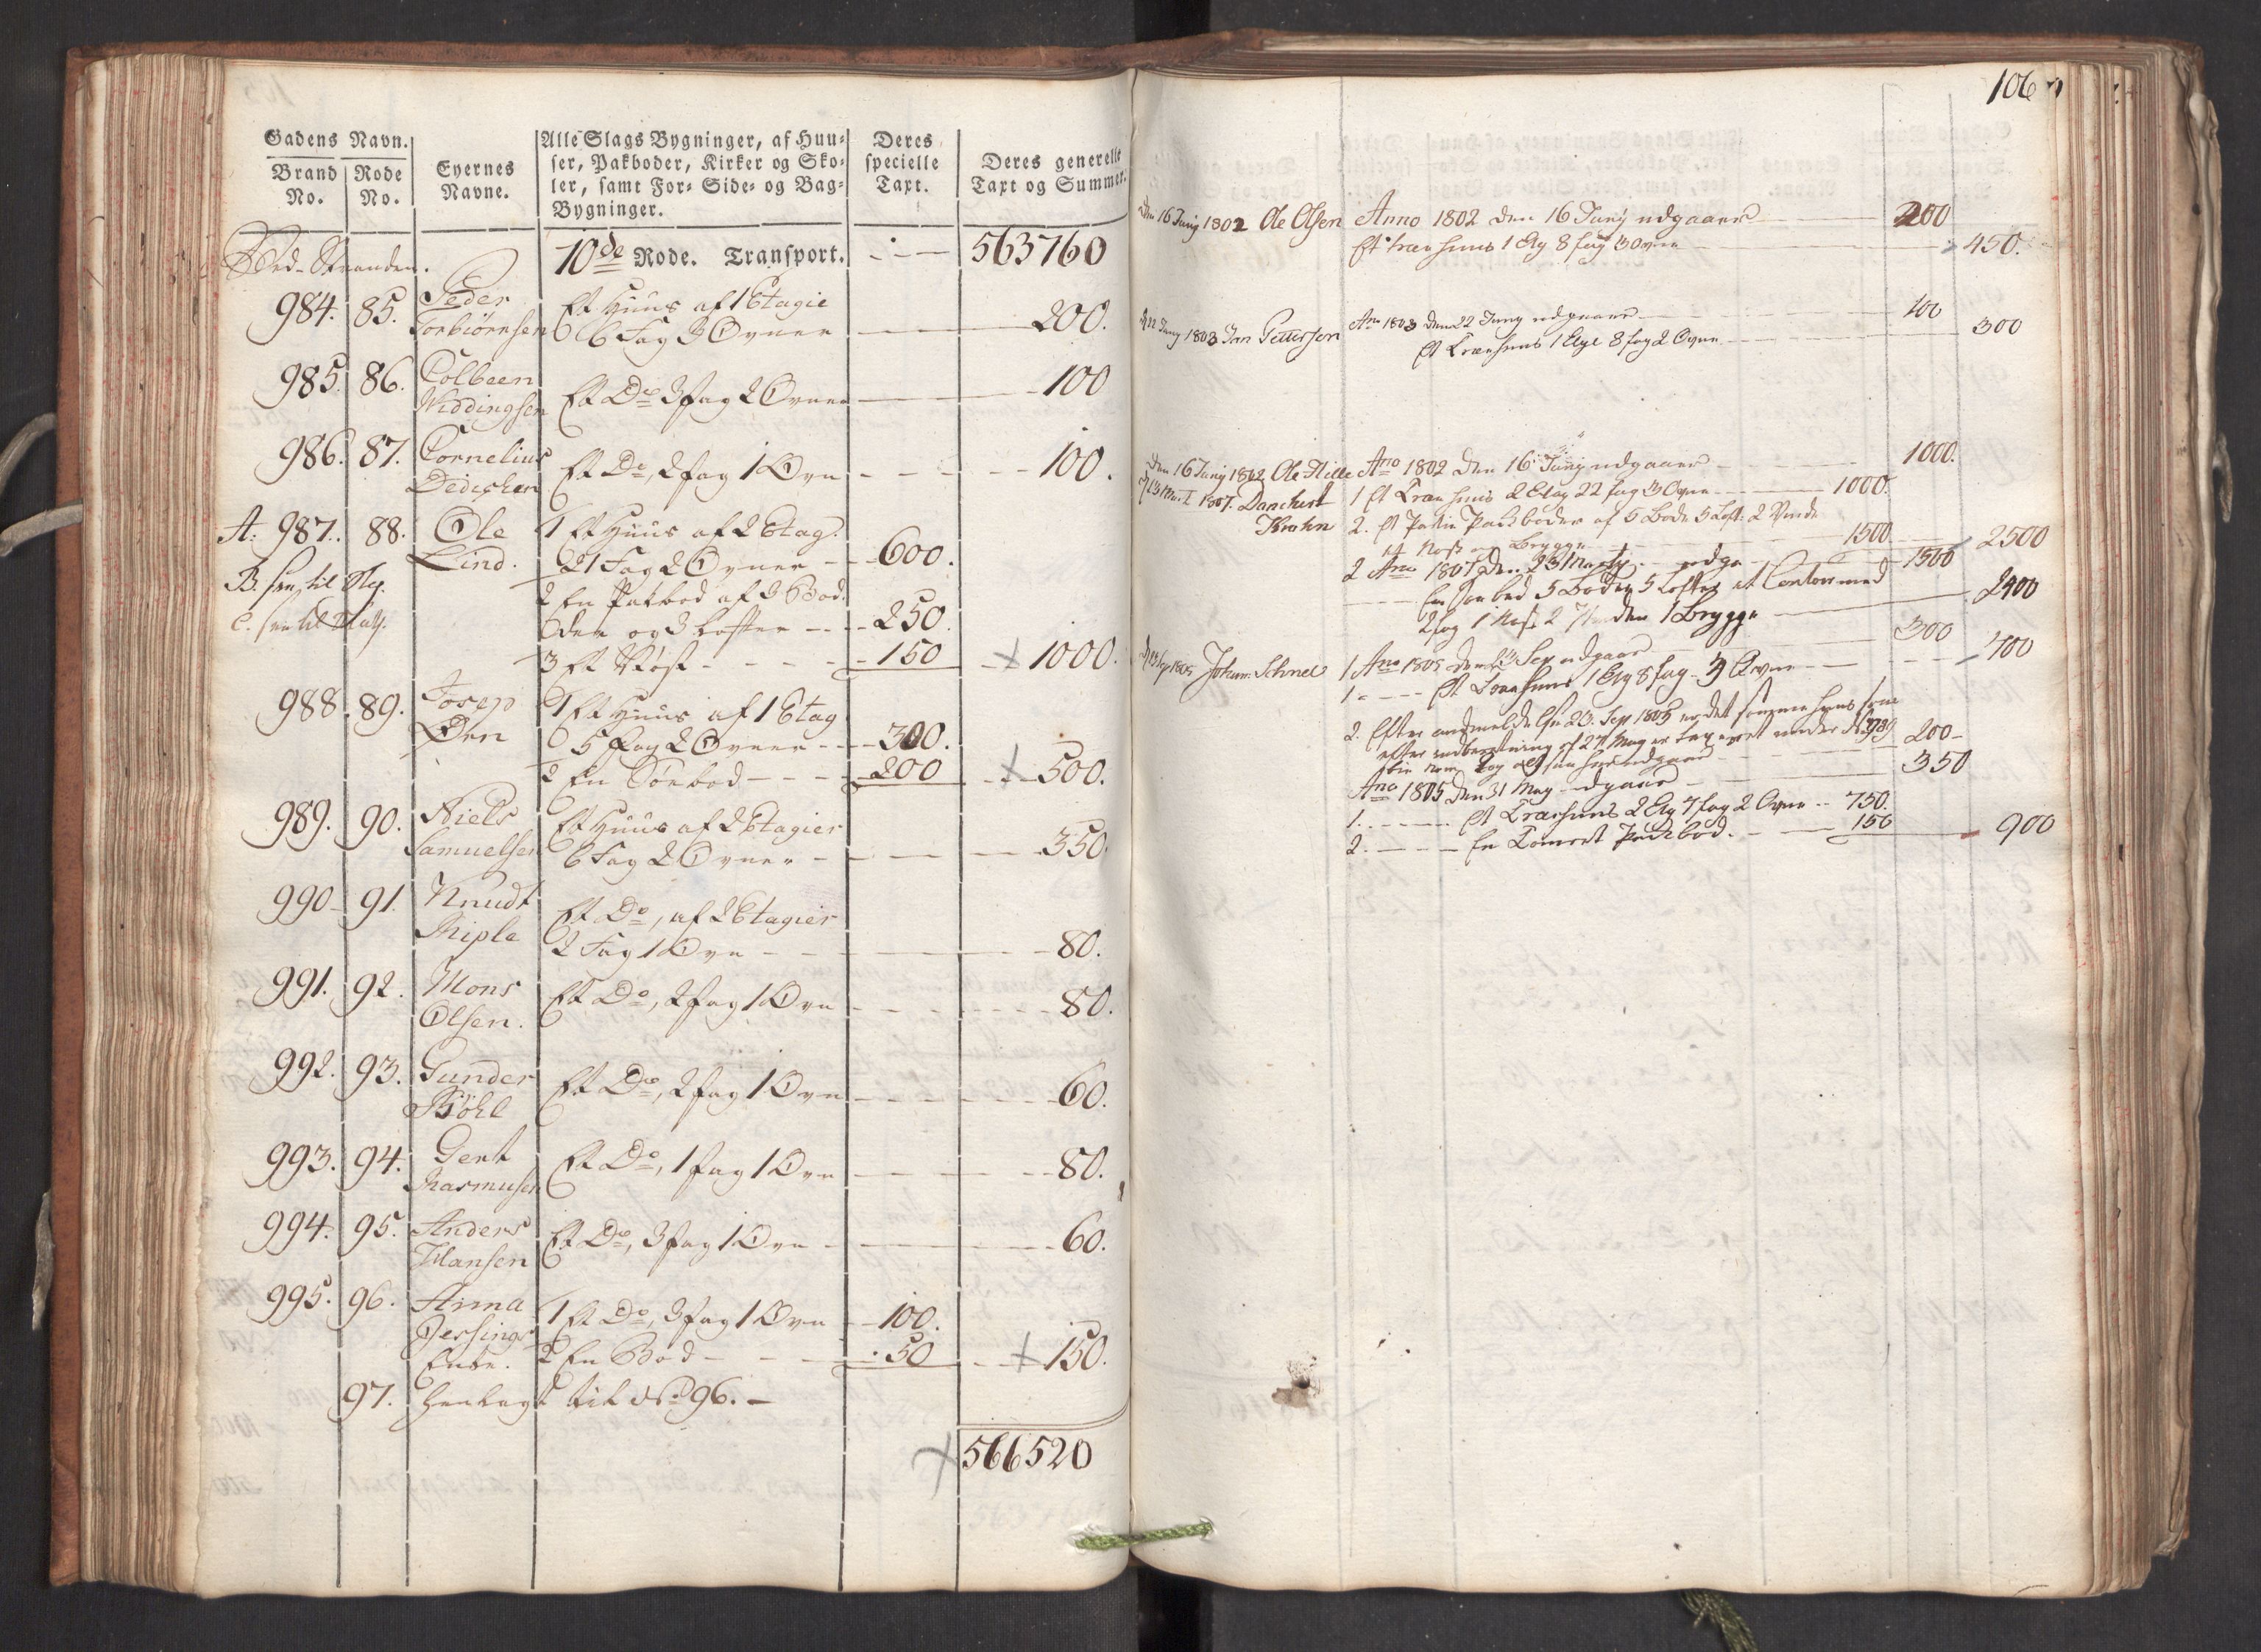 Gadens Navn.
Brand No.
Rode No.
Eyernes Navne.
Alle Slags Bygninger, af Huu-
ser, Pakboder, Kirker og Sko-
ler, samt For- Side- og Bag-
Bygninger.
Deres specielle Taxt.
Deres generelle Taxt og Summer.
Ved-Stranden. 10de Rode. Transport. 563760
984. 85. Peder Et Huus af 1 Etagie
Torbiörnsen 6 Fag 3 Ovner 200.
985. 86. Colbeen
Widdingsen Et Do 3 fag 2 Ovner 100
986. 87. Cornelius Et Do, 2 fag 1 Ovn 100.
Dedichen
A. 987. 88. Ole 1 Et Huus af 2 Etag.
Lind. 21 Fag 2 Ovner 600.
B.
2 En Pakbod af 3 Bod-
C.
der og 3 Lofter 250.
3 Et Nøst 150 1000.
988. 89. Josep 1 Et Huus af 1 Etag
Øen 5 fag 2 Ovner 300.
2 En Søebod 200 500.
989. 90. Niels Et Huus af 2 Etagier
Samuelsen 6 Fag 2 Ovner 350.
990 91. Knudt Et Do, af 2 Etagier
Riple 2 Fag 1 Ovn 80.
991. 92. Mons Et Do, 2 fag 1 Ovn 80.
Olsen.
992. 93. Gunder Et Do, 2 fag 1 Ovn 60.
Böhl
993. 94. Gert Et Do, 1 fag 1 Ovn 80.
Rasmusen
994. 95. Anders Et Do, 3 fag 1 Ovn 60.
Hansen
995. 96. Anna 1 Et Do, 3 fag 1 Ovn 100.
Jessings
Enke. 2 En Bod 50 150.
97. henlagt til No 96.
566520
106
Den 16 Junij 1802 Ole Olsen Anno 1802 den 16 Junij udgaaer 200
Et træhuus 1 Etg 8 fag 3 Ovne 450.
22 Junij 1803 Jan Pettersen Ano 1803 den 22 Junij udgaaer 100
Et Træehuus 1 Etge 8 fag 2 Ovne 300
Den 16 Junij 1802 Ole Hille Ano 1802 den 16 Junij udgaaer 1000.
1807. Danchert 1 Et Træehuus 2 Etag 22 fag 3 Ovne 1000.
Krohn 2. Et Pakboder af 5 Boder 5 Loft: 2
Nøst Brygge 1500 2500
2 Ano 1807 den 23 Marty udga 1500
En Søebod 5 Boder 5 Lofter et Contoir med
2 fag 1 Nøst 2 1 Brygge 2400
1805 Johan: Schnel 1 Ano 1805 den Sep udgaar 300
1 Et Træehuus 1 Etg 8 fag 3 Ovne 400
2. Efter anmeldelse 23. Sep 1805 er det samme huus som
efter indberetning af 27 May er taxeret under No 989
200
Ano 1805 den 31 May udgaar 350
1. Et Træehuus 2 Etg 7 fag 2 Ovne 750.
2. En Tomret Pakbod. 150 900